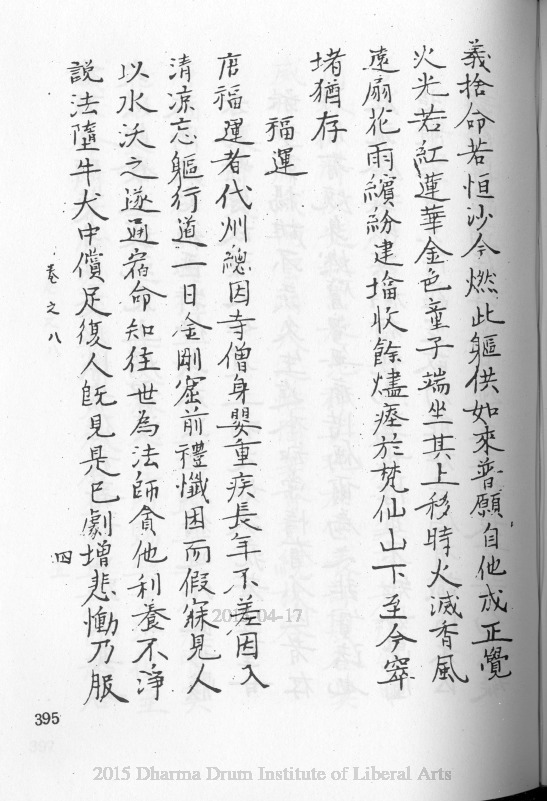 義捨命若恒沙今燃此軀供如來普願自他成正覺
火光若紅蓮華金色童子端坐其上移時火滅香風
遠扇花雨繽紛建墖收餘燼瘞於梵仙山下至今窣
堵猶存
福運
唐福運者代州總因寺僧身嬰重疾長年不差因入
清凉忘軀行道一日金剛窟前禮懺困而假寐見人
以水沃之遂通宿命知往世為法師貪他利養不淨
說法墮牛犬中償足復人旣見是已劇增悲慟乃服
卷之八
四
395
2015-04-17
2015 Dharma Drum Institute of Liberal Arts